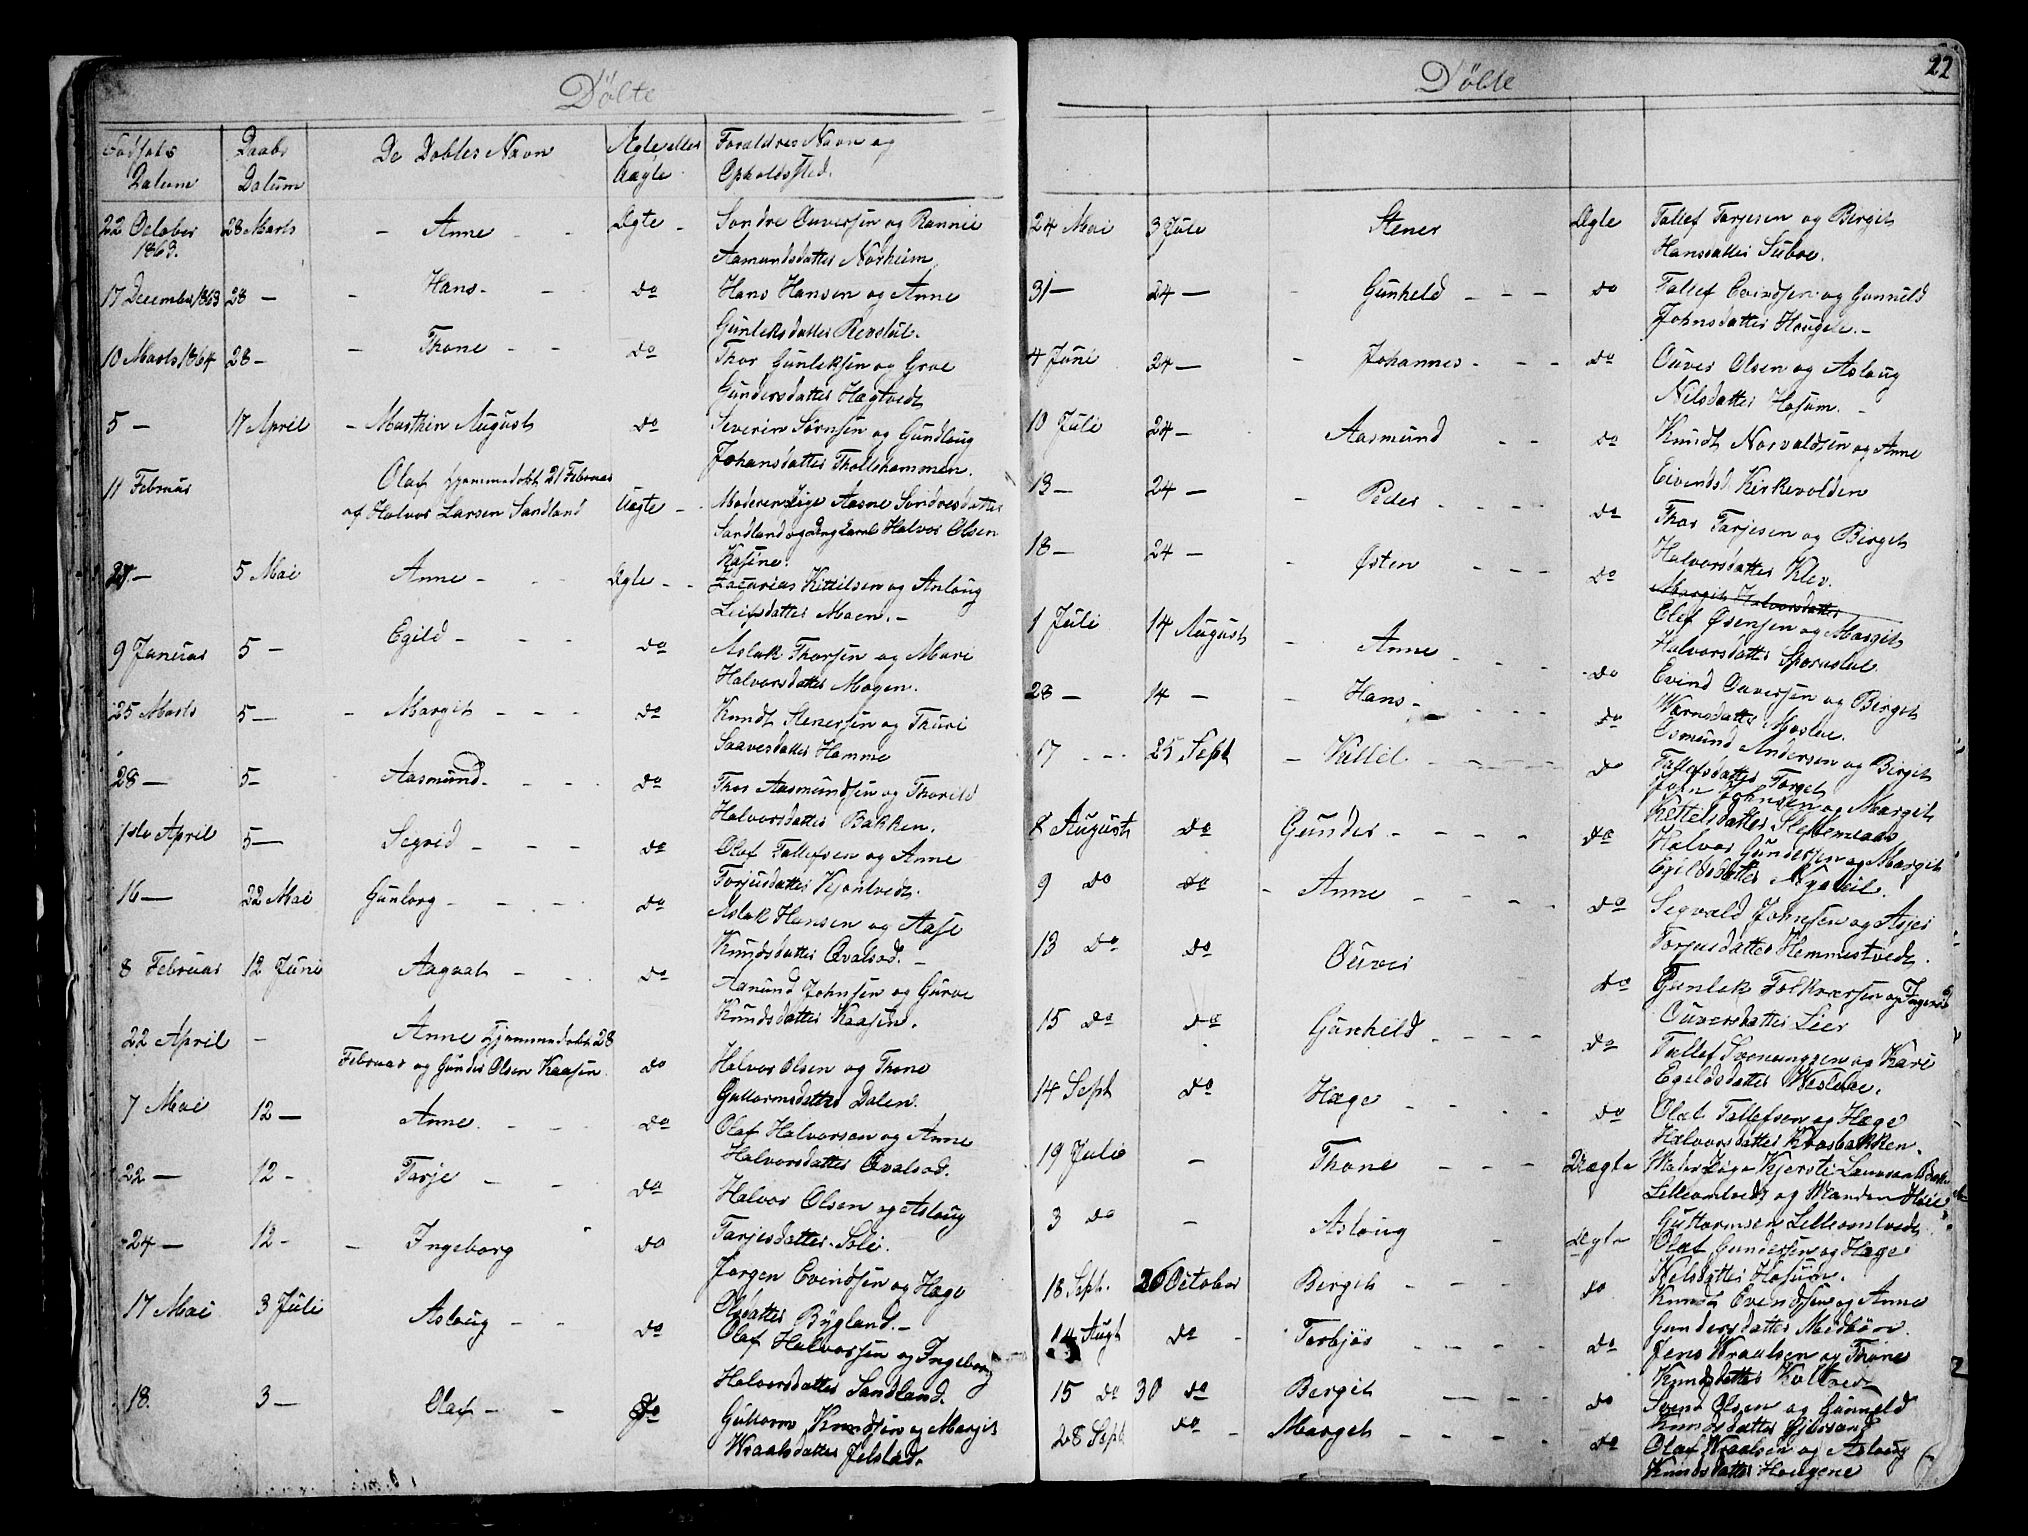 Dölte
Fødsels Datum
Daabs Datum
De Döbtes Navn
Ægte eller Uægte
Foraldres Navn og Opholdssted.
22 October 1863. 28 Marts - Anne - - Ægte - Sondre Ouversen og Rannei
Aamundsdatter Norheim
17 December 1863 28 - - Hans - - do Hans Hansen og Anne
Gunleksdatter
10 Marts 1864 28 - - Thone - - do Thor Gunleksen og Groe
Gundersdatter Hægtvedt
5 - 17 April - Marthin August do Severin Sörnsen og Gundloug
Johansdatter Thollehammen.
11 Februar Olaf hjemmedöbt 21 Februar
af Halvor Larsen Sandland Uægte - Moderen Pige Aasne Sondresdatter
Sandland og Ungkarl Halvor Olsen
Kasine.
5 Mai Anne - - Ægte - - Zacarias Kittilsen og Anloug
Leifsdatter Moen. -
9 Januar 5 - Egild - - - do Aslak Thorsen og Mari
Halvorsdatter Mogen.
25 Marts 5 - - Margit - - - do Knudt Stenersen og Thuri
Saavesdatter Hamme
28 - 5 - Aasmund - - - do Thor Aasmundsen og Thorild
Halvorsdatter Bakken.
1ste April 5 - Segrid - - - do Olaf Tallefsen og Anne
Torjusdatter Kjontvedt.
16 - 22 Mai Gunborg - - - do Aslak Hansen og Aase
Knudsdatter Qvalsod. -
8 Februar 12 Juni Aagaat - - do Aanund Johnsen og Guroe
Knudsdatter Kaasen.
22 April - Anne hjemmedöbt 28
Februar og Gunder Olsen Kaasen do Halvor Olsen og Thone
Guttormsdatter Dalen.
7 Mai 12 - Anne - - - do Olaf Halvorsen og Anne
Halvorsdatter Qvalsod.
22 - 12 - Tarje - - do Halvor Olsen og Asloug
Tarjesdatter Soli.
24 - 12 - - Ingeborg do Jorgen Evindsen og Hæge
Olsdatter Bygland. -
17 Mai 3 Juli Asloug - - do Olaf Halvorsen og Ingeborg
Halvorsdatter Sandland.
18. 3 - Olaf - - do Guttorm Knudsen og Margit
Wraalsdatter Jelstad.
22
Dölte
24 Mai 3 Jule Stener Ægte Tallef Tarjesen og Bergit
Hansdatter Suboe.
31 - 24 - - Gunheld - - - do Tallef Evindsen og Gunnild
Johnsdatter Haugen. -
4 Juni 24 - - Johannes - - - do Ouver Olsen og Asloug
Nilsdatter Hosum. -
10 Juli 24 - Aasmund - - do Knudt Norvaldsen og Anne
Eivendsd Kirkevolden
13 - 24 - - Peder - - - - do Thor Tarjesen og Birgit
Halvorsdatter Klev.
18 - 24 - - Østen - - - do Margit Halvorsdatter
Olef Øsensen og Margit
Halvorsdatter
1 Juli 14 August - Anne - - - - do Evind Ouversen og Bergit
Wærnsdatter Mosboe.
28 - 14 - - Hans - - - - do Osmund Andersen og Birgit
Tallefsdatter Torget
17 - - 25 Sept - Kittil - - - - do John Johnsen og Margit
Kettelsdatter Slettemeaas
8 August do Gunder - - - - do Halvor Gundersen og Margit
Egildsdatter
9 do do - Anne - - - - do Segvald Johnsen og Asjer
Torjusdatter Hemmestvedt.
13 do do Ouver do Gunlek Folkvarsen og Ingerid
Ouversdatter Leer
15 do do Gunheld - - - - do Tallef Svenungsen og Kari
Egeldsdatter Westboe.
14 Sept do Hæge - - - - do Olaf Tallefsen og Hæge
Halvorsdatter Krosbakken.
19 Julie - Thone - - - Uægte Moder Pige Kjersti
Lilleomtvedt og Manden
Guttormsen Lilleomtvedt.
3 do - Asloug - Ægte Olaf Gundersen og Hæge
Nelsdatter Hosum.
18 Sept. 26 October Bergit - - - do Knudt Evendsen og Anne
Gundersdatter Midböen.
14 Augt do - Torbjör - - - - do Jens Wraalsen og Thone
Knudsdatter
15 do 30 do Bergit - - - do Svend Olsen og Gunneld
Knudsdatter
28 Sept do - Marget - - - - do Olaf Wraalsen og Asloug
Knudsdatter Haugene